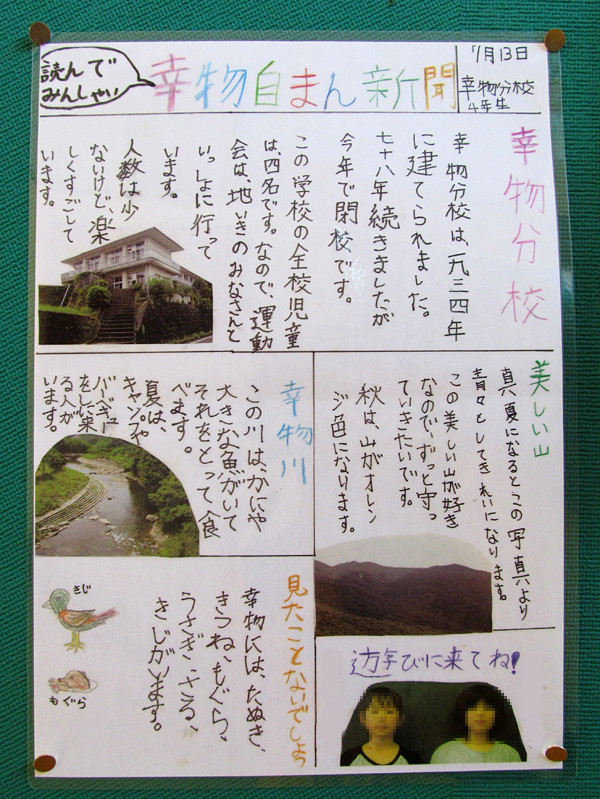 読んで
みんしゃい
幸物自まん新聞
7月13日
幸物分校
4年生
幸物分校
幸物分校は、一九三四年
に建てられました。
七十八年続きましたが
今年で閉校です。
この学校の全校児童
は、四名です。なので、運動
会は、地いきのみなさんと
いっしょに行って
います。
人数は少
ないけど、楽
しくすごして
います。
美しい山
真夏になるとこの写真より
青々としてきれいになります。
この美しい山が好き
なので、ずっと守っ
ていきたいです。
秋は、山がオレン
ジ色になります。
幸物川
この川は、かにや
大きな魚がいて
それをとって食
べます。
夏は、
キャンプや
バーベキュー
をしに来
る人が
います。
見たことないでしょう
幸物には、たぬき、
きつね、もぐら、
うさぎ、さる、
きじがいます。
きじ
もぐら
遊びに来てね!